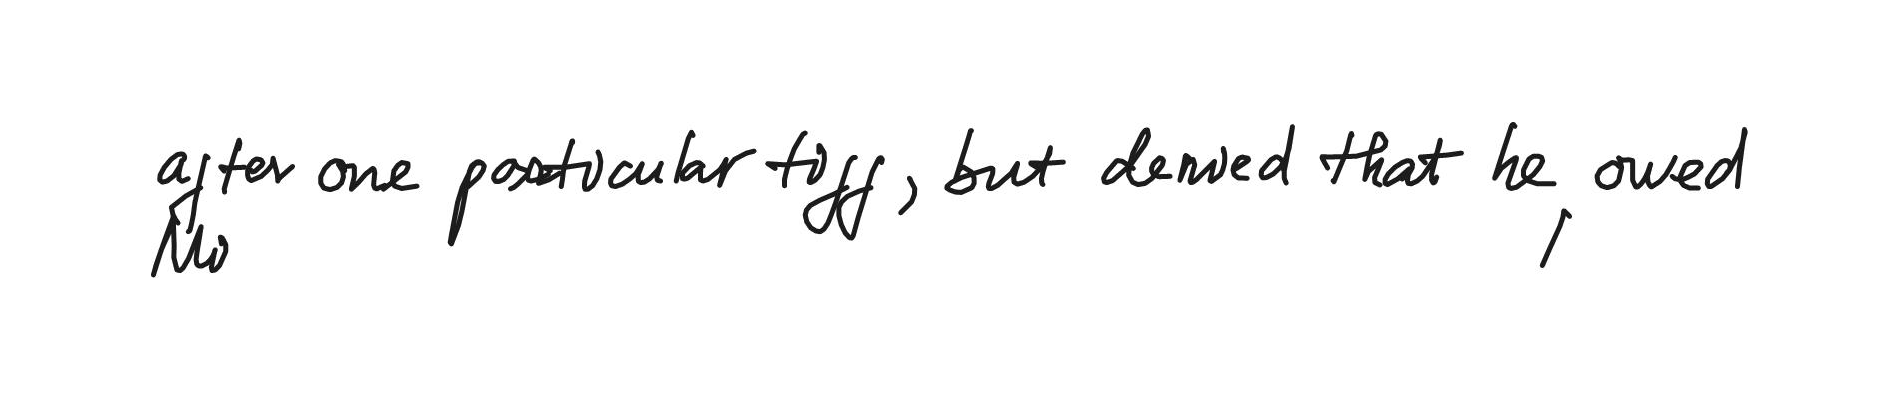 after one particular tiff, but denied that he owed
Mo